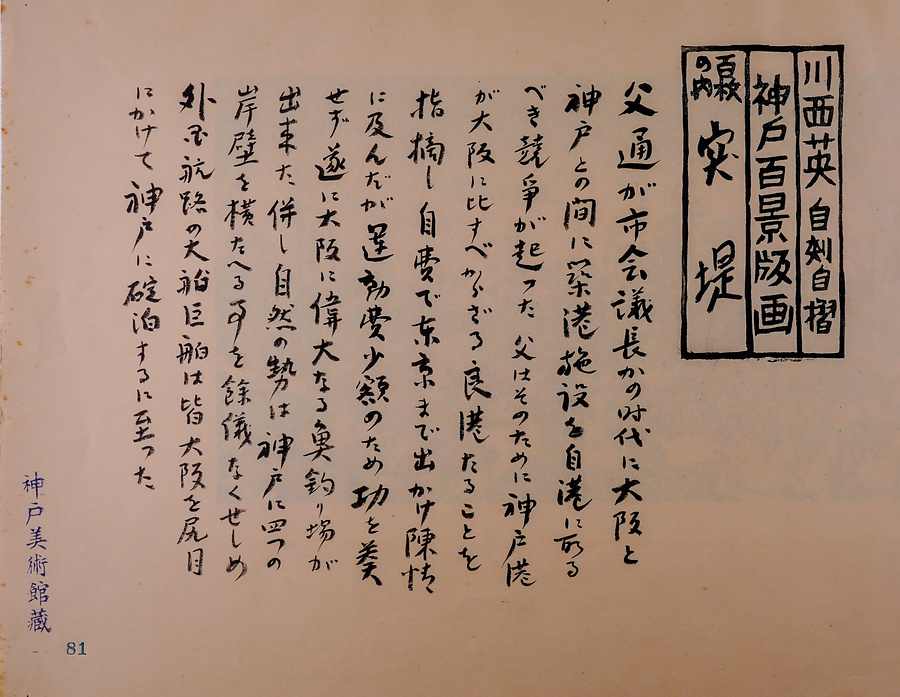 川西英 自刻自摺
神戸百景版画
百枚の内 突堤
父通が市会議長かの时代に大阪と
神戸との間に築港施設を自港に取る
べき競爭が起った 父はそのために神戸港
が大阪に比すべからざる良港たることを
指摘し自費で东京まで出かけ陳情
に及んだが運動費少額のため功を奏
せず 遂に大阪に偉大なる魚釣り場が
出来た 併し自然の勢は神戸に四つの
岸壁を横たへる事を餘儀なくせしめ
外国航路の大船巨舶は皆大阪を尻目
にかけて神戸に碇泊するに至った
神戸美術館藏
81